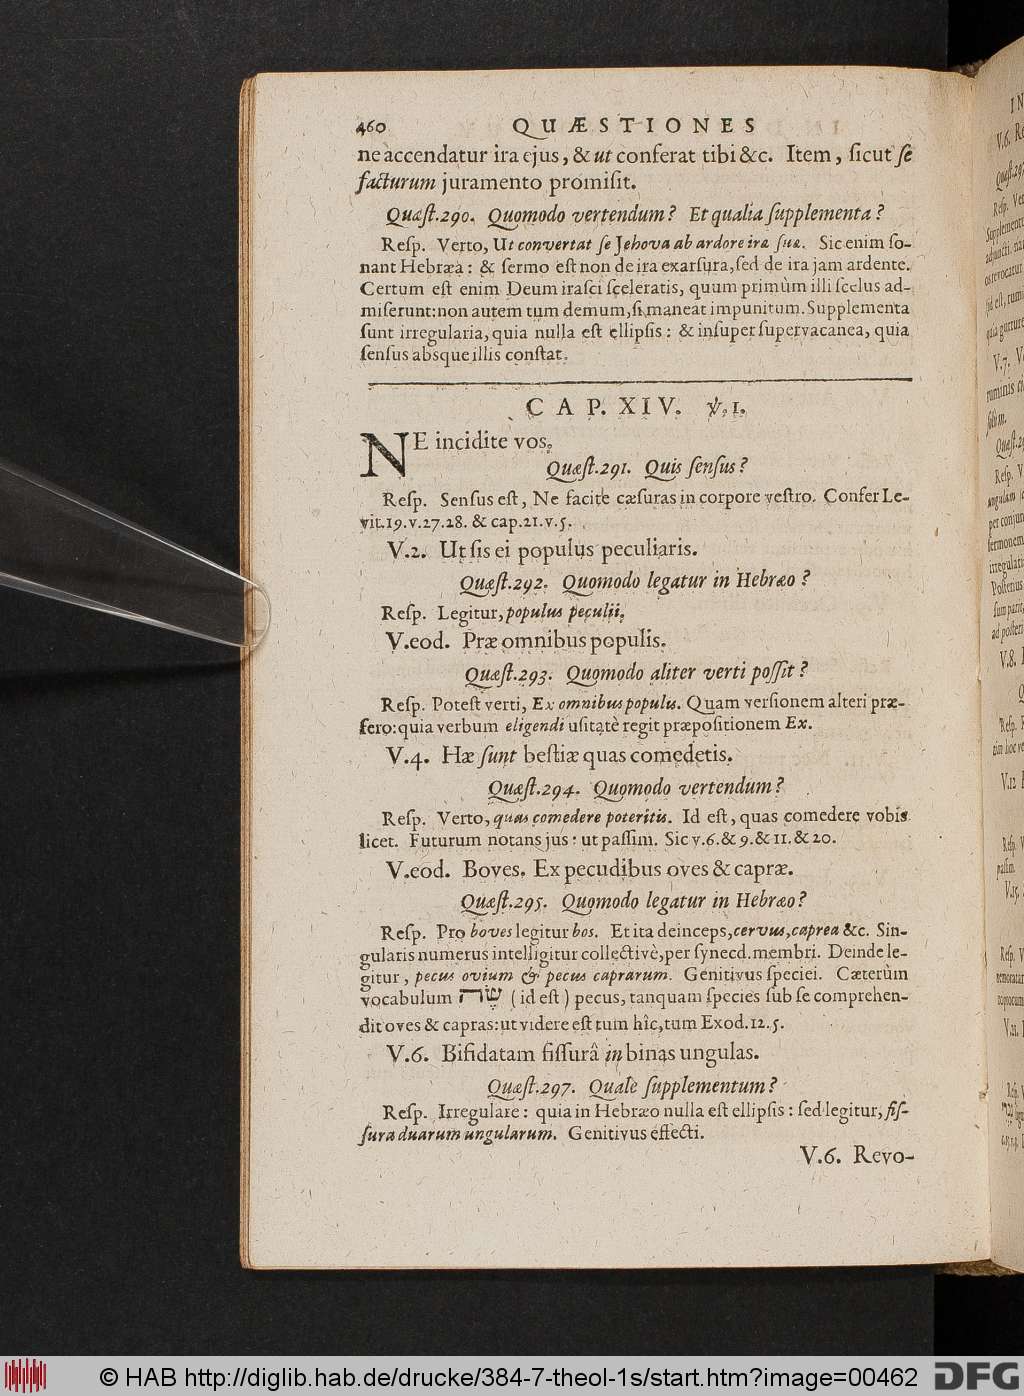 460 QUÆSTIONES
ne accendatur ira ejus, & ut conferat tibi &c. Item, ſicut ſe
facturum juramento promiſit.
Quæſt.290. Quomodo vertendum? Et qualia ſupplementa?
Reſp. Verto, Ut convertat ſe Jehova ab ardore iræ ſuæ. Sic enim ſo-
nant Hebræa: & ſermo eſt non de ira exarſura, ſed de ira jam ardente.
Certum eſt enim Deum iraſci ſceleratis, quum primùm illi ſcelus ad-
miſerunt: non autem tum demum, ſi maneat impunitum. Supplementa
ſunt irregularia, quia nulla eſt ellipſis: & inſuper ſupervacanea, quia
ſenſus absque illis conſtat.
CAP. XIV. ℣. 1.
NE incidite vos.
Quæſt.291. Quis ſenſus?
Reſp. Senſus eſt, Ne facite cæſuras in corpore veſtro. Confer Le-
vit.19.v.27.28. & cap.21.v.5.
V.2. Ut ſis ei populus peculiaris.
Quæſt.292. Quomodo legatur in Hebræo?
Reſp. Legitur, populus peculii.
V.eod. Præ omnibus populis.
Quæſt.293. Quomodo aliter verti poſſit?
Reſp. Poteſt verti, Ex omnibus populis. Quam verſionem alteri præ-
fero: quia verbum eligendi uſitatè regit præpoſitionem Ex.
V.4. Hæ ſunt beſtiæ quas comedetis.
Quæſt.294. Quomodo vertendum?
Reſp. Verto, quas comedere poteritis. Id eſt, quas comedere vobis
licet. Futurum notans jus: ut paſſim. Sic v.6.& 9.& 11.& 20.
V.eod. Boves. Ex pecudibus oves & capræ.
Quæſt.295. Quomodo legatur in Hebræo?
Reſp. Pro boves legitur bos. Et ita deinceps, cervus, caprea &c. Sin-
gularis numerus intelligitur collectivè, per ſynecd. membri. Deinde le-
gitur, pecus ovium & pecus caprarum. Genitivus ſpeciei. Cæterùm
vocabulum שֶׂה (id eſt) pecus, tanquam ſpecies ſub ſe comprehen-
dit oves & capras: ut videre eſt tum hîc, tum Exod.12.5.
V.6. Bifidatam fiſſurâ in binas ungulas.
Quæſt.297. Quale ſupplementum?
Reſp. Irregulare: quia in Hebræo nulla eſt ellipſis: ſed legitur, fiſ-
ſura duarum ungularum. Genitivus effecti.
V.6. Revo-
© HAB http://diglib.hab.de/drucke/384-7-theol-1s/start.htm?image=00462 DFG